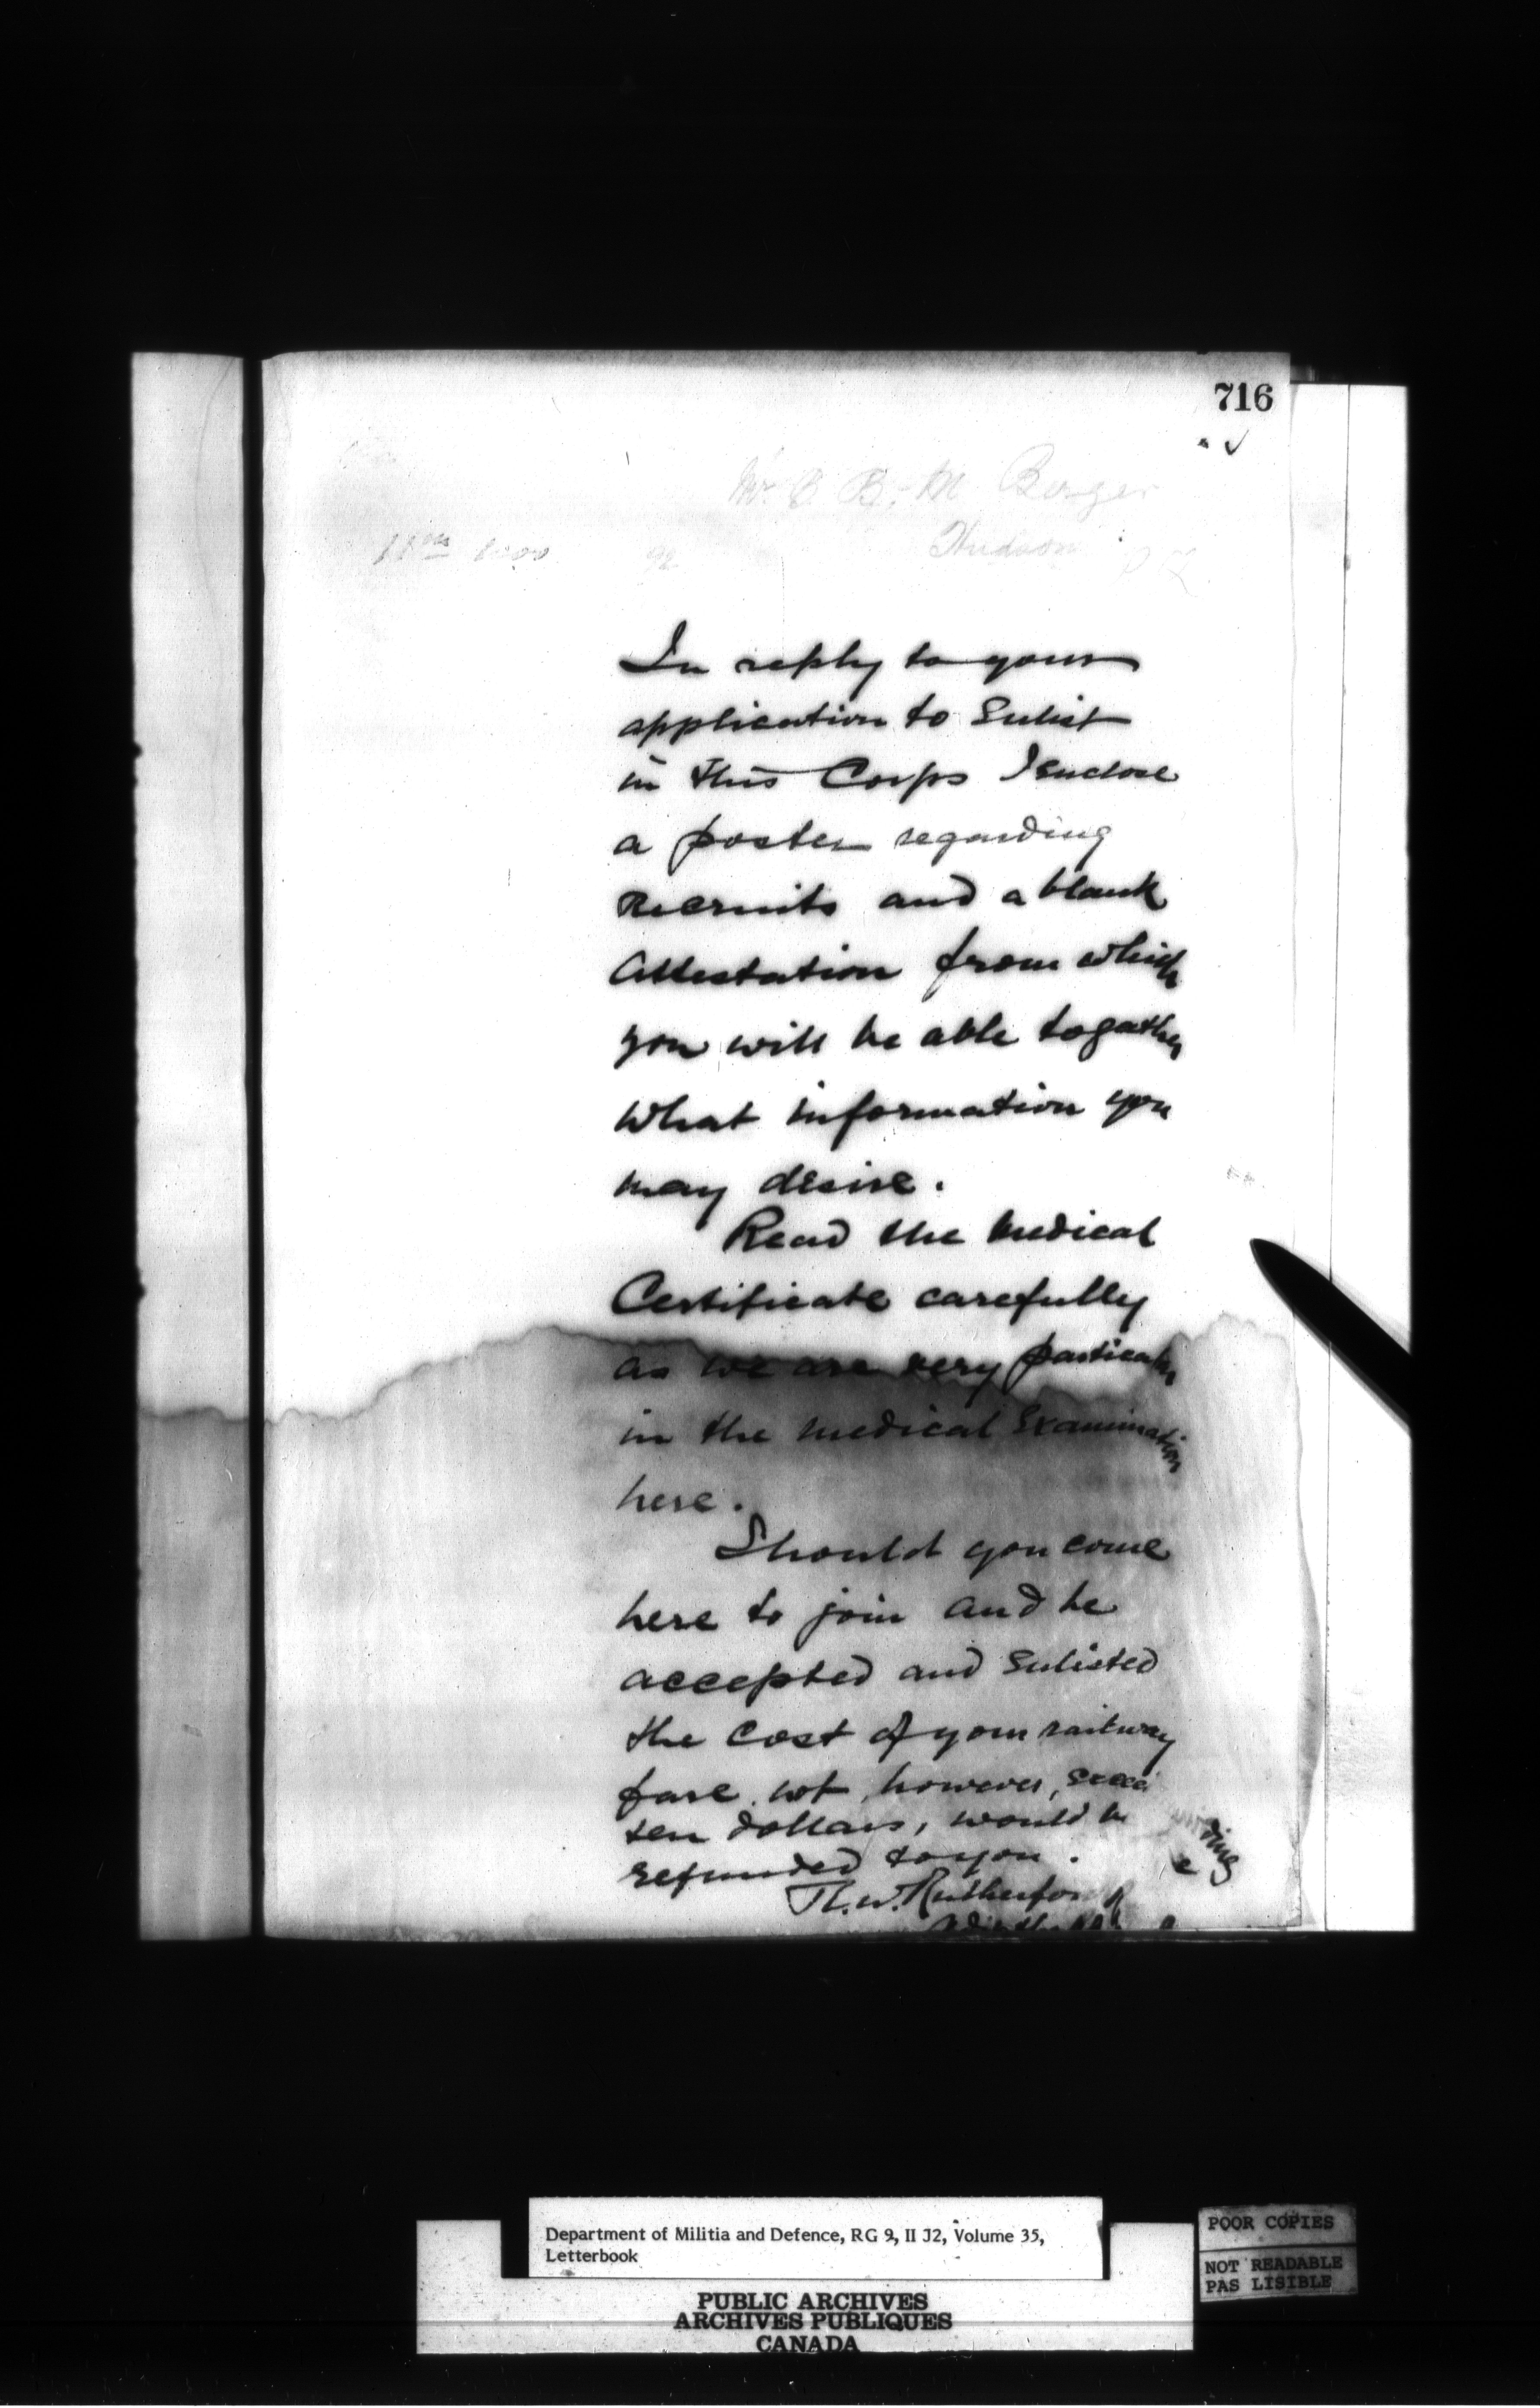 716
Mr. C B. M Berger
11th 92 Hudson P Q
In reply to your
application to Enlist
in this Corps I enclose
a poster regarding
Recruits and a blank
Attestation from which
you will be able to gather
what information you
may desire.
Read the Medical
Certificate carefully
as we are very particular
in the medical Examination
here.
Should you come
here to join and be
accepted and Enlisted
the Cost of your railway
fare, not, however, exceeding
ten dollars, would be
refunded to you.
Th. W. Rutherford
Department of Militia and Defence, RG 9, II J2, Volume 35,
Letterbook
POOR COPIES
NOT READABLE
PAS LISIBLE
PUBLIC ARCHIVES
ARCHIVES PUBLIQUES
CANADA